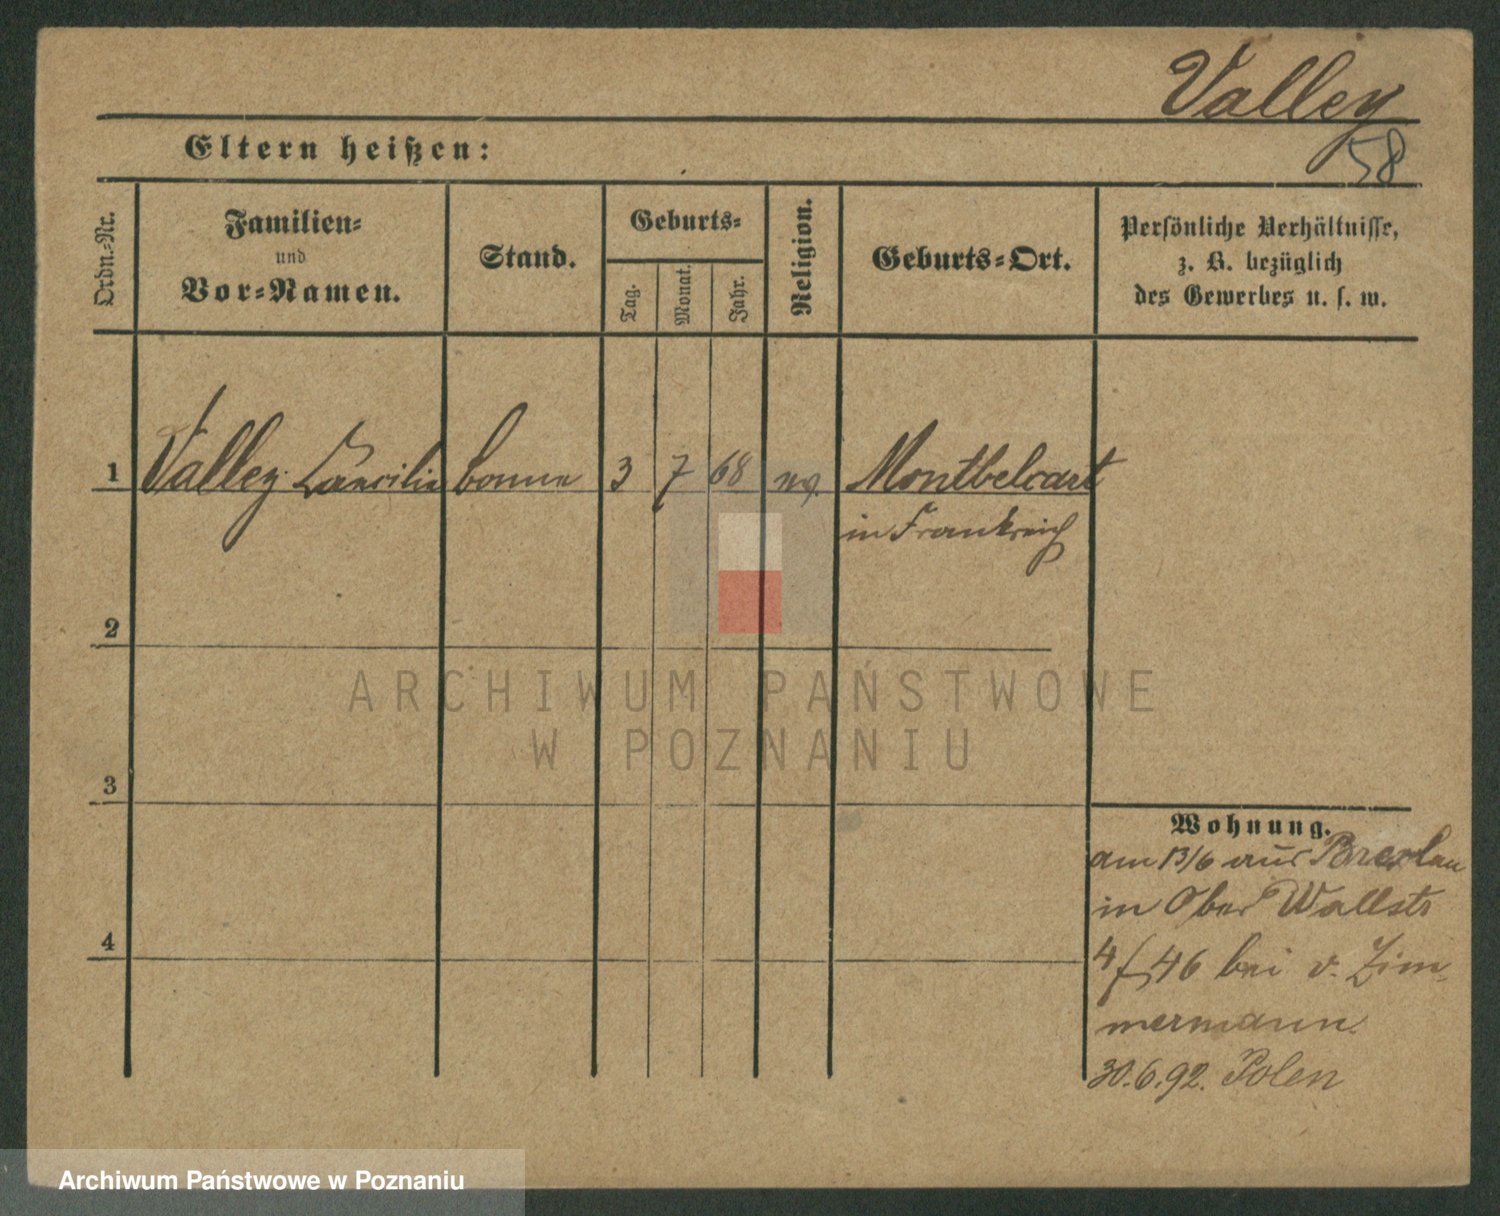 Valley
58
Eltern heißen:
Ordn.-Nr.
Familien-
und
Vor-Namen.
Stand.
Geburts-
Tag.
Monat.
Jahr.
Religion.
Geburts-Ort.
Persönliche Verhältnisse,
z. B. bezüglich
des Gewerbes u. s. w.
1 Valley bonne 3 7 68 ev. Montbeleart
in Frankreich
2
ARCHIWUM PAŃSTWOWE
W POZNANIU
3
Wohnung.
am 13/6 aus Breslau
in Ober Wallstr
4
46 bei v. Zim-
mermann.
30.6.92. Polen
Archiwum Państwowe w Poznaniu